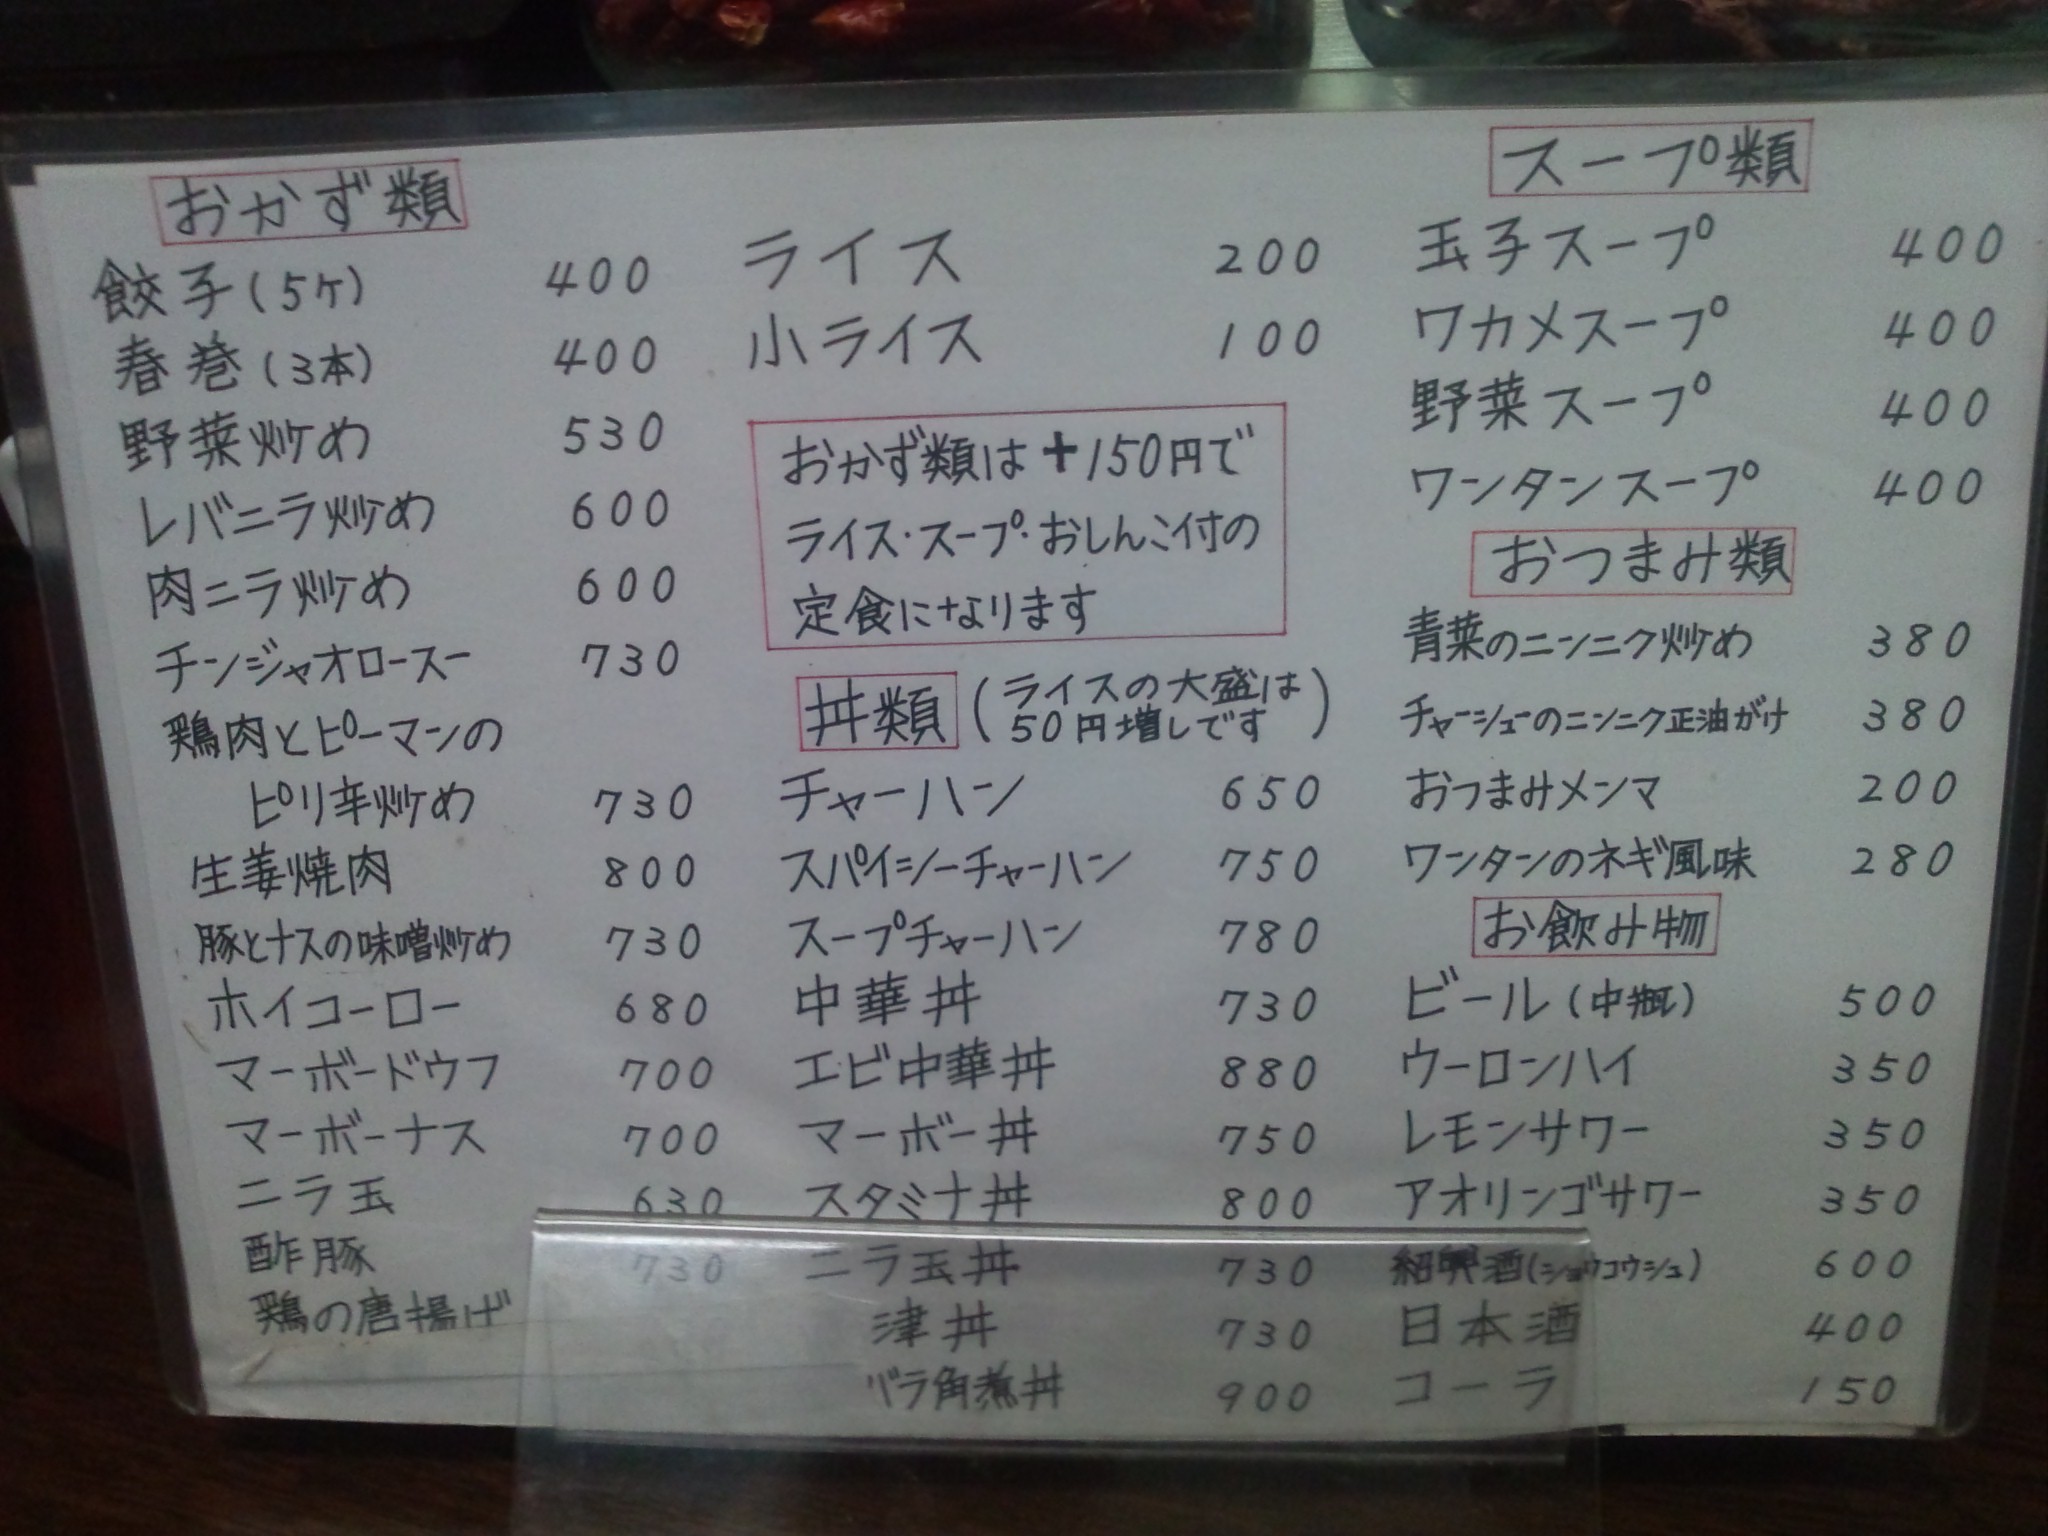 おかず類
餃子(5ケ) 400
春巻(3本) 400
野菜炒め 530
レバニラ炒め 600
肉ニラ炒め 600
チンジャオロースー 730
鶏肉とピーマンの
ピリ辛炒め 730
生姜焼肉 800
豚とナスの味噌炒め 730
ホイコーロー 680
マーボードウフ 700
マーボーナス 700
ニラ玉 630
酢豚 730
鶏の唐揚げ
ライス 200
小ライス 100
おかず類は+150円で
ライス・スープ・おしんこ付の
定食になります
丼類(ライスの大盛は
50円増しです)
チャーハン 650
スパイシーチャーハン 750
スープチャーハン 780
中華丼 730
エビ中華丼 880
マーボー丼 750
スタミナ丼 800
ニラ玉丼 730
津丼 730
バラ角煮丼 900
スープ類
玉子スープ 400
ワカメスープ 400
野菜スープ 400
ワンタンスープ 400
おつまみ類
青菜のニンニク炒め 380
チャーシューのニンニク正油がけ 380
おつまみメンマ 200
ワンタンのネギ風味 280
お飲み物
ビール(中瓶) 500
ウーロンハイ 350
レモンサワー 350
アオリンゴサワー 350
紹興酒(ショウコウシュ) 600
日本酒 400
コーラ 150